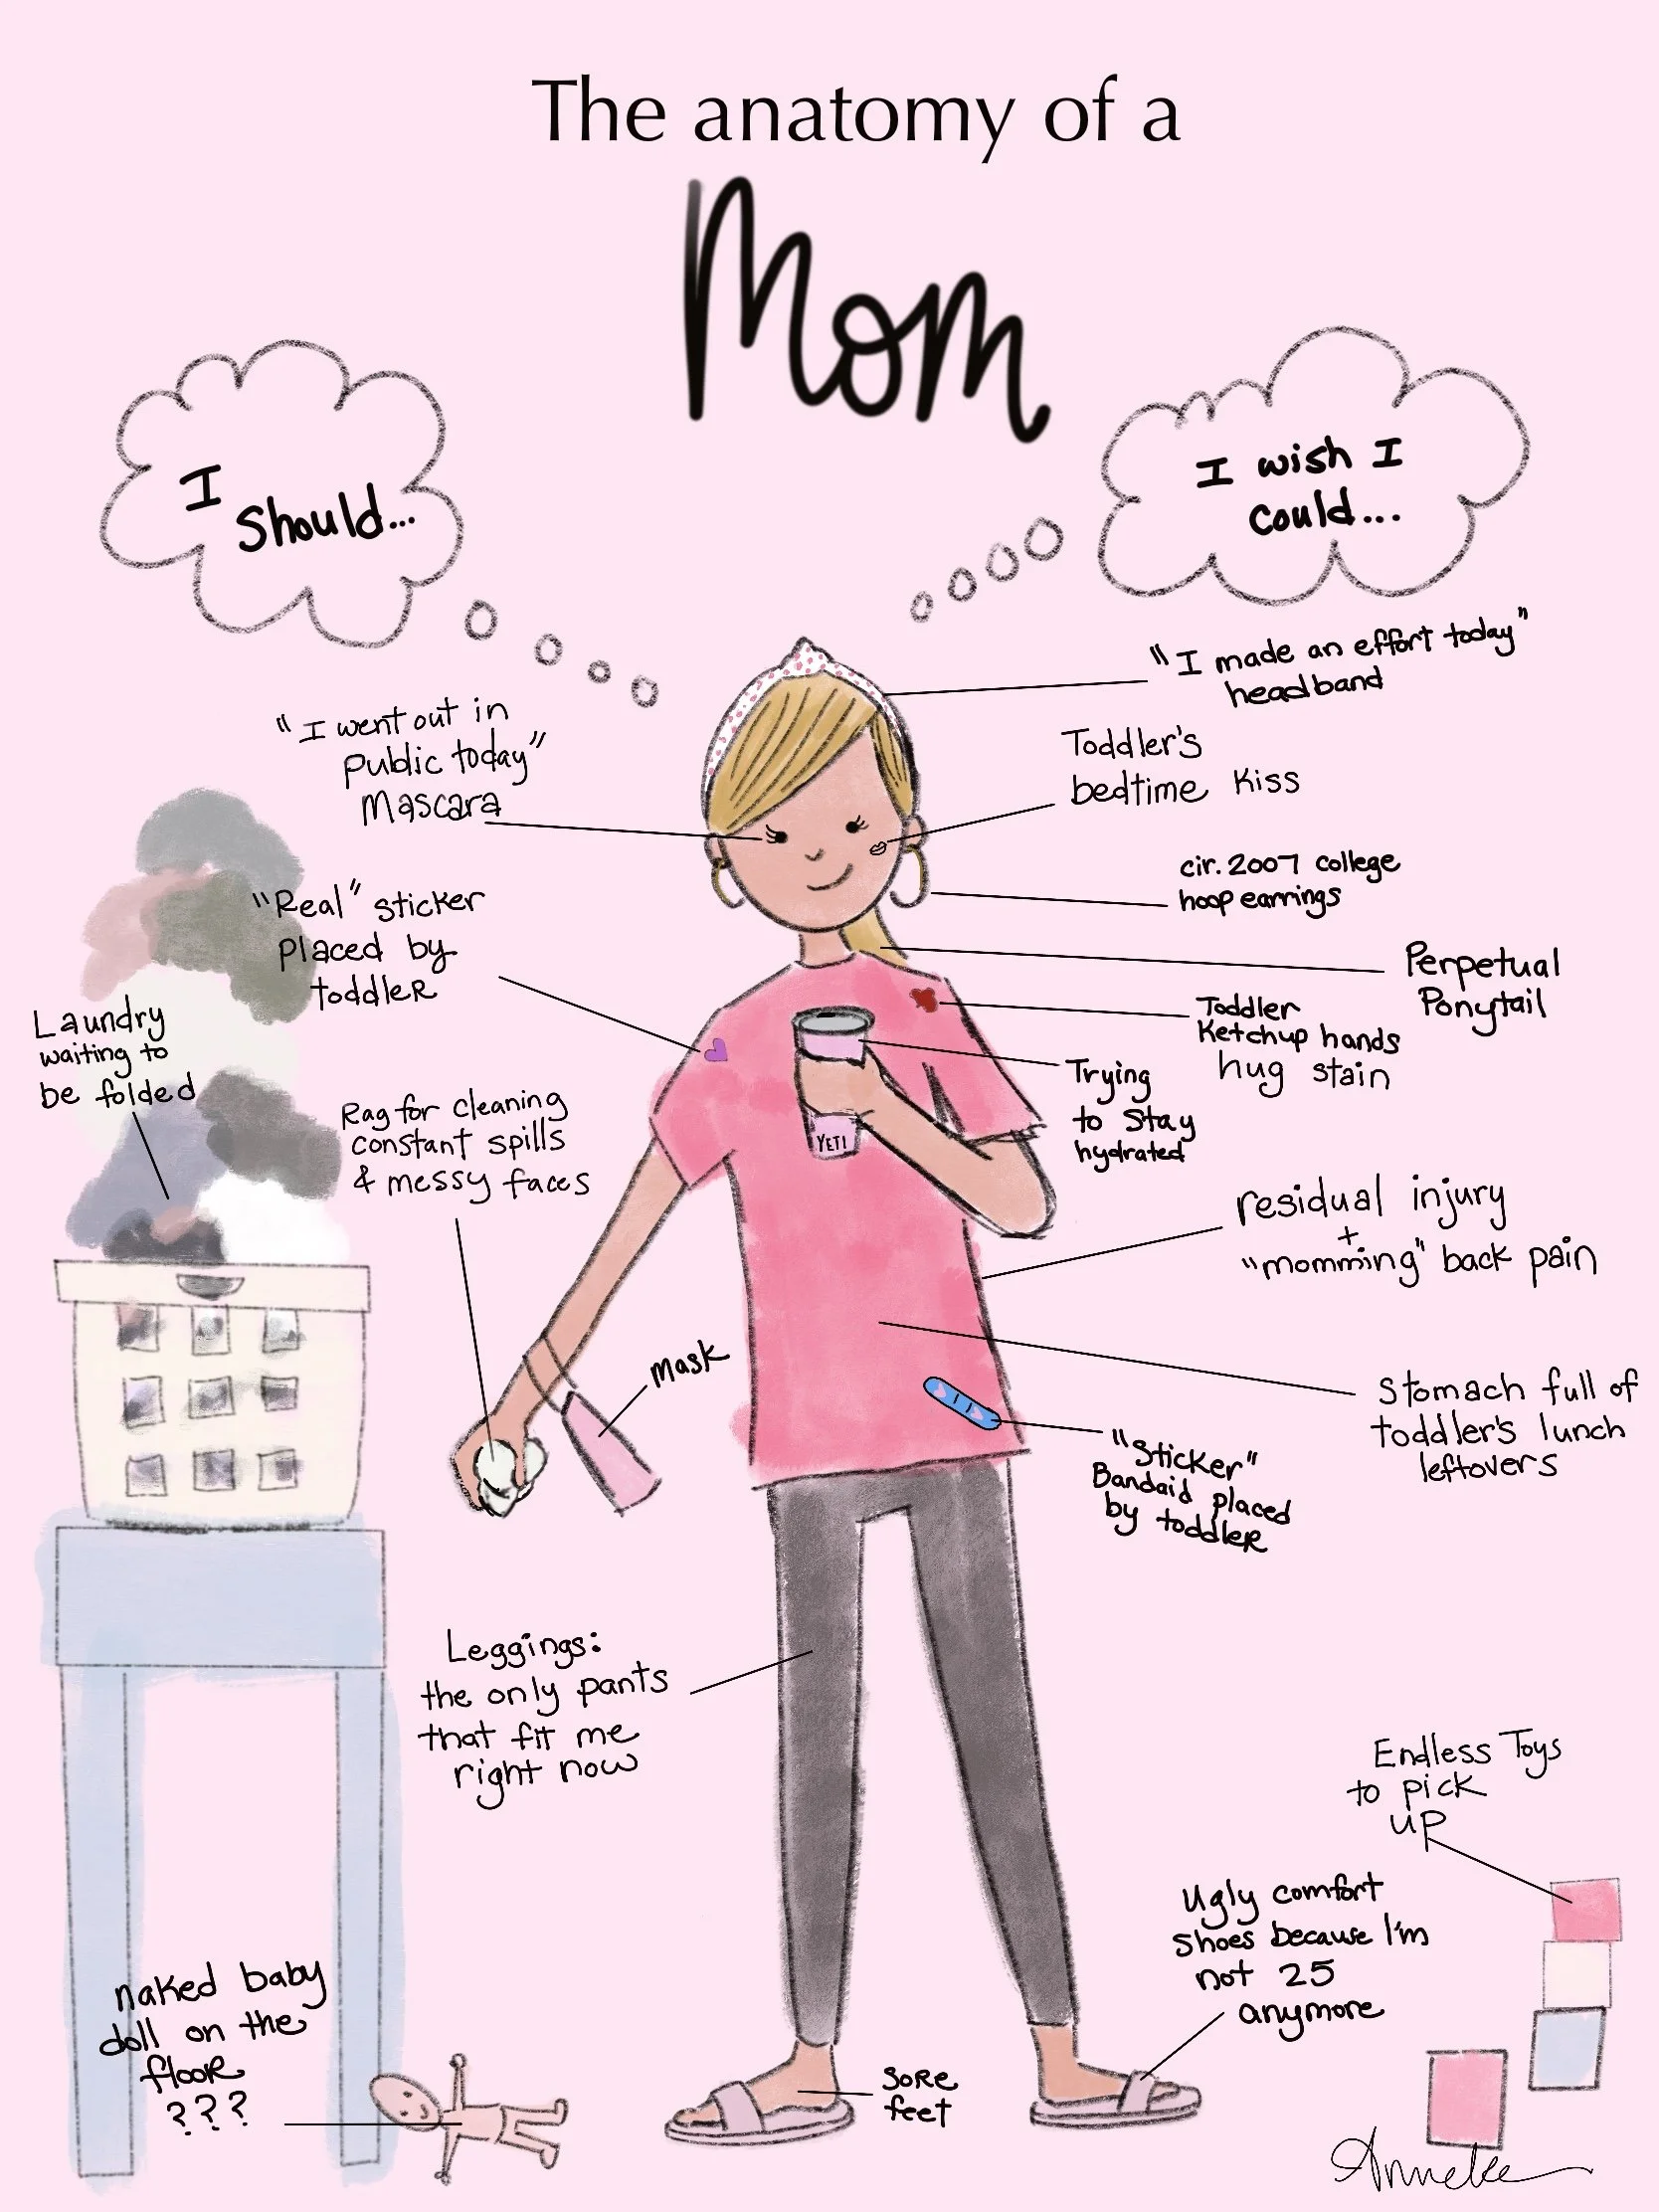 The anatomy of a
Mom
I
Should...
I wish I
could...
"I made an effort today"
headband
"I went out in
public today"
Mascara
Toddler's
bedtime kiss
cir. 2007 college
hoop earrings
"Real" sticker
placed by
toddler
Perpetual
Ponytail
Toddler
Ketchup hands
hug stain
Laundry
waiting to
be folded
Rag for cleaning
constant spills
& messy faces
Trying
to Stay
hydrated
YETI
residual injury
+
"momming" back pain
mask
Stomach full of
toddler's lunch
leftovers
"Sticker"
Bandaid placed
by toddler
Leggings:
the only pants
that fit me
right now
Endless Toys
to pick
up
Ugly comfort
shoes because I'm
not 25
anymore
naked baby
doll on the
floor
???
sore
feet
Anneke